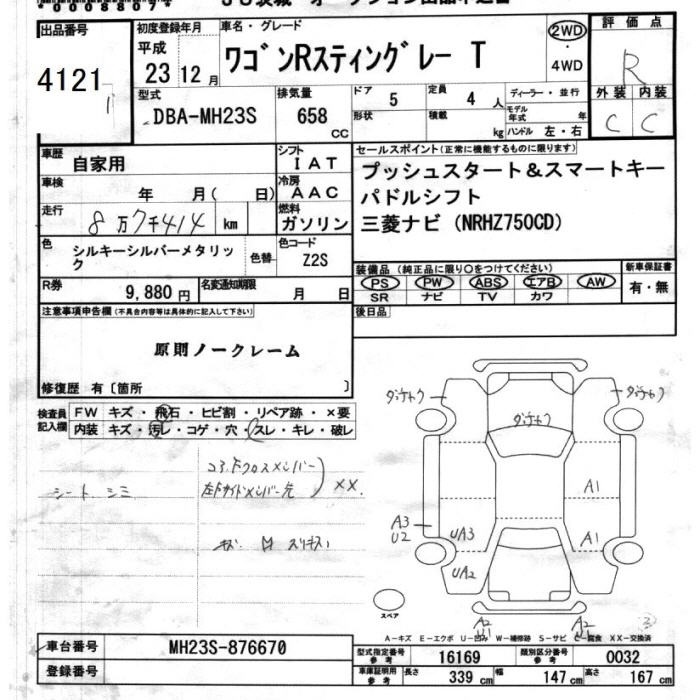 出品番号
4121
初度登録年月
平成
23 12 月
車名・グレード
ワゴンRスティングレー T
2WD
・
4WD
評価点
R
外装 内装
C C
型式
DBA-MH23S
排気量
658 CC
ドア
5
定員
4 人
形状
積載
kg
ディーラー・並行
モデル年式 年
ハンドル 左・右
車歴
自家用
シフト
IAT
車検
年 月( 日)
冷房
AAC
走行
8万7千414 km
燃料
ガソリン
セールスポイント(正常に機能するものに限ります)
プッシュスタート&スマートキー
パドルシフト
三菱ナビ (NRHZ750CD)
色
シルキーシルバーメタリック
色替
色コード
Z2S
R券
9,880 円
名変通知期限
月 日
装備品(純正品に限り○をつけてください)
PS PW ABS エアB AW
SR ナビ TV カワ
新車保証書
有・無
後日品
注意事項申告欄(不具合内容等は具体的に記入して下さい)
原則ノークレーム
修復歴 有〔箇所 〕
検査員記入欄
FW キズ・飛石・ヒビ割・リペア跡・×要
内装 キズ・汚レ・コゲ・穴・スレ・キレ・破レ
シート シミ
コアF クロスメンバー
左Fサイドメンバー先
XX
ダメチャク
ダメチャク
ダメチャク
A1
A3
U2
UA3
A1
UA2
A2
A2
スペア
A-キズ E-エクボ U-凹み W-補修跡 S-サビ C-腐食 XX-交換済
車台番号
MH23S-876670
登録番号
型式指定番号
参考
16169
類別区分番号
参考
0032
車庫証明用
参考
長さ 339 cm
幅 147 cm
高さ 167 cm